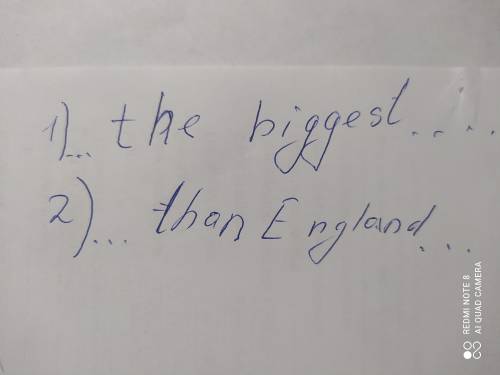 1)... the biggest.....
2)... than England...
REDMI NOTE 8
AI QUAD CAMERA